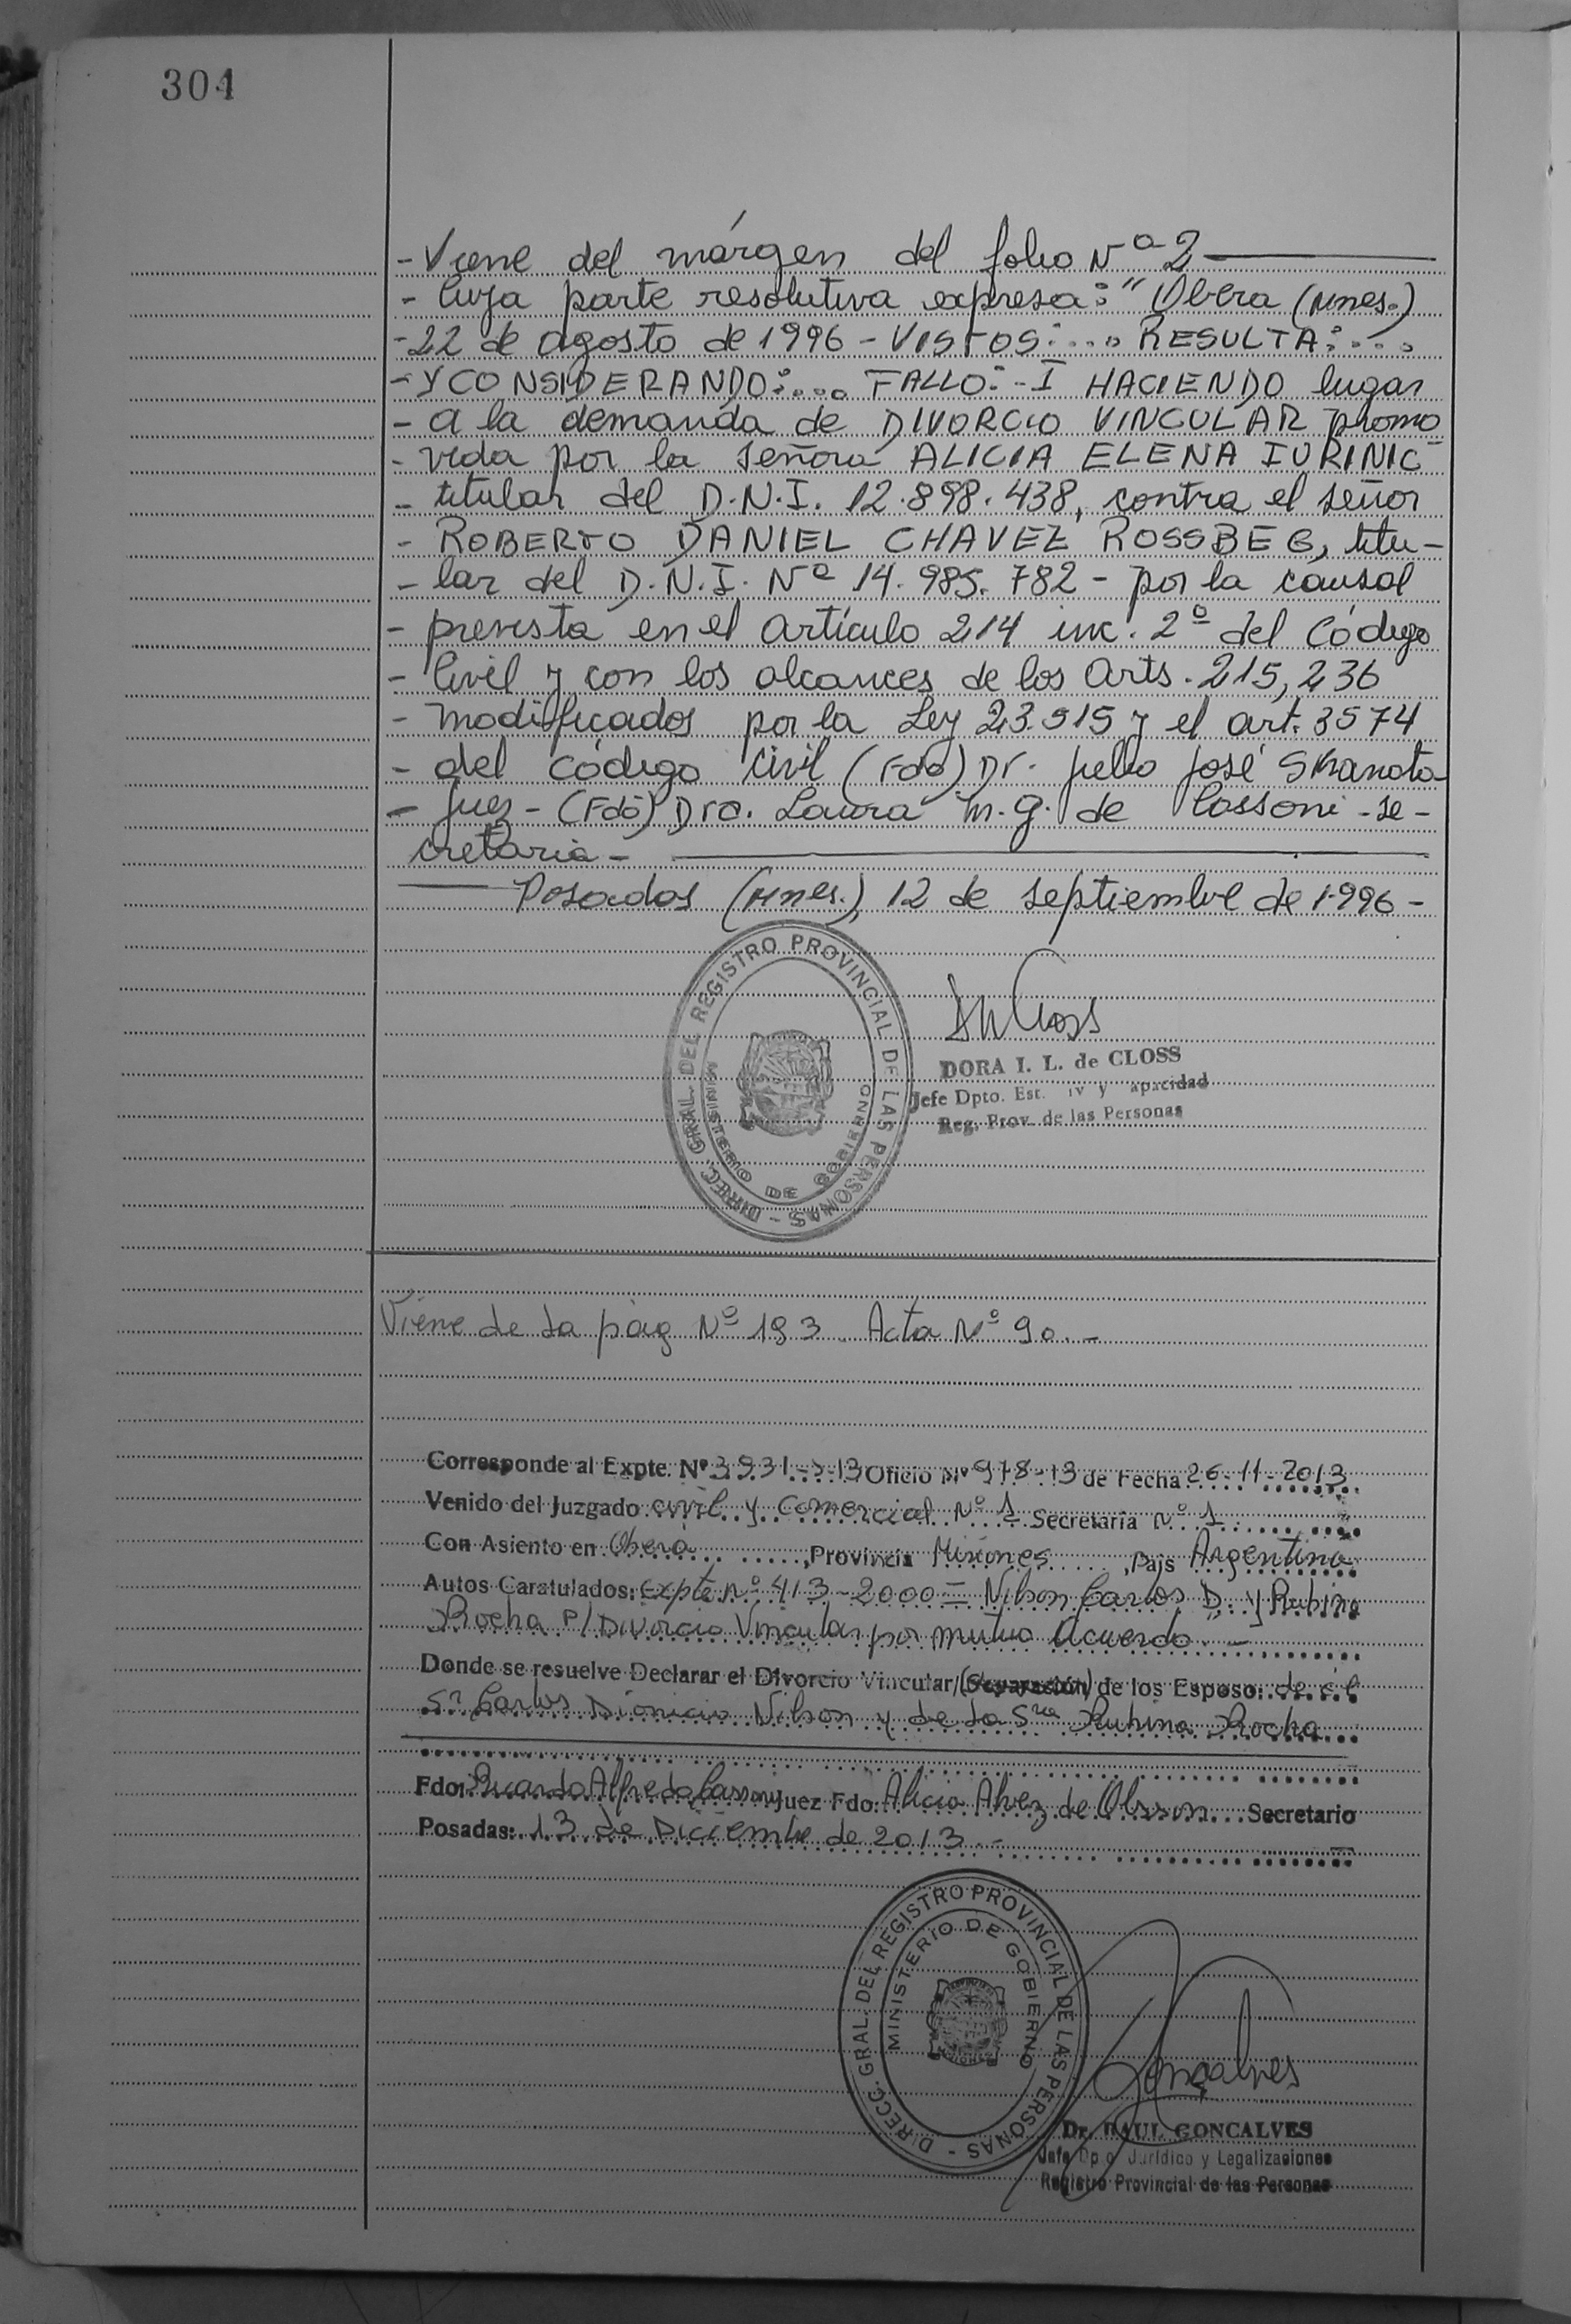 304
- Viene del márgen del folio Nº 2
- Cuya parte resolutiva expresa: "Oberá (Mnes.)
- 22 de agosto de 1996 - VISTOS:... RESULTA:...
- Y CONSIDERANDO:... FALLO: - I HACIENDO lugar
- a la demanda de DIVORCIO VINCULAR promo
- vida por la señora ALICIA ELENA IURINIC
- titular del D.N.I. 12.898.438, contra el señor
- ROBERTO DANIEL CHAVEZ ROSSBEG, titu-
- lar del D.N.I. Nº 14.985.782 - por la cáusal
- prevista en el artículo 214 inc. 2º del Código
- Civil y con los alcances de los Arts. 215, 236
- modificados por la Ley 23.515 y el art. 3574
- del código Civil (Fdo) Dr. Julio José Skanata
- Juez - (Fdo) Dra. Laura M. G. de Cassoni - se-
cretaria -
Posadas (Mnes.), 12 de septiembre de 1996 -
DIREC. GRAL. DEL REGISTRO PROVINCIAL DE LAS PERSONAS -
MINISTERIO DE GOBIERNO
DORA I. L. de CLOSS
Jefe Dpto. Est. iv y apacidad
Reg. Prov. de las Personas
Viene de La pág Nº 193 Acta Nº 90. -
Corresponde al Expte. Nº 3931-13 Oficio Nº 978-13 de Fecha 26-11-2013
Venido del Juzgado Civil y Comercial Nº 1 Secretaría Nº 1
Con Asiento en Oberá, Provincia Misiones, País Argentina
Autos Caratulados: Expte nº 413-2000 = Nilson Carlos D. y Rubina
Rocha P/ Divorcio Vincular por mutuo Acuerdo. -
Donde se resuelve Declarar el Divorcio Vincular/(Separación) de los Esposo: de el
Sr Carlos Dionicio Nilson y de La Sra Rubina Rocha
Fdo: Ricardo Alfredo Cassoni Juez Fdo: Alicia Alvez de Olsson Secretario
Posadas: 13 de Diciembre de 2013. -
DIRECC. GRAL. DEL REGISTRO PROVINCIAL DE LAS PERSONAS -
MINISTERIO DE GOBIERNO
MISIONES
Gonçalves
Dr. RAUL GONCALVES
Jefe Dpto Jurídico y Legalizaciones
Registro Provincial de las Personas